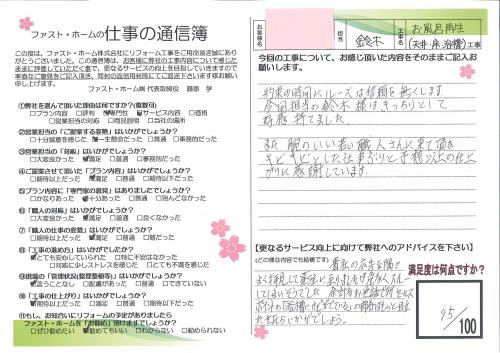 ファスト・ホームの仕事の通信簿
この度は、ファスト・ホーム株式会社にリフォーム工事をご用命頂き誠にあり
がとうございました。この通信簿は、お客様に弊社の工事内容について感じた
ままに評価していただく事で、更なるサービスの向上を目指していきますので
率直なご意見をご記入頂き、同封の返信用封筒にてご返送下さいます様お願い
申し上げます。
ファスト・ホーム㈱ 代表取締役
①弊社を選んで頂いた理由は何ですか?(複数可)
プラン内容 評判 専門性 サービス内容 価格
営業担当の対応 商品説明 当社の場所
②営業担当の「ご提案する姿勢」はいかがでしょうか?
十分誠意を感じた 一生懸命だった 普通 物足りない
③営業担当の「対応」はいかがでしょうか?
大変良かった 満足 普通 事務的だった
④ご提案させて頂いた「プラン内容」はいかがでしょうか?
期待以上だった 満足 普通 期待以下だった
⑤プラン内容に「専門家の意見」はありましたでしょうか?
かなりあった 十分あった 普通 殆んどなかった
⑥「職人の対応」はいかがでしょうか?
大変良かった 満足 普通 良くなかった
⑦「職人の仕事の姿勢」はいかがでしょうか?
期待以上だった 満足 普通 雑だった
⑧「工事の進めり」はいかがでしたか?
とても安心していられた 特に不安はなかった
対応に少しストレスを感じた とても不満を感じた
⑨現場の「管理状況(整理整頓等)」はいかがですか?
言うことなし 配慮があった 普通 できていない
⑩「工事の仕上がり」はいかがでしょうか?
期待以上だった 満足 普通 期待以下だった
⑪もし、お知り合いにリフォームの予定がありましたら
ファスト・ホームを「お勧め」頂けますでしょうか?
ぜひ勧めたい 勧めてもいい わからない 勧められない
お客様名
担当
鈴木
工事名
お風呂再生
(天井・床・浴槽)工事
今回の工事について、お感じ頂いた内容をそのままご記入お
願いします。
約束の時間にルーズは信頼を無くします
今回担当の鈴木様はきっちりとして
好感持てました
また腕のいい若い職人さんに来て頂き
とした仕事ぶりと予想以上の仕上
がりに感謝しています。
【更なるサービス向上に向けて弊社へのアドバイスを下さい】
(どの様な内容でも結構です)
貴社の広告を隅々
満足度は何点ですか?
95/100